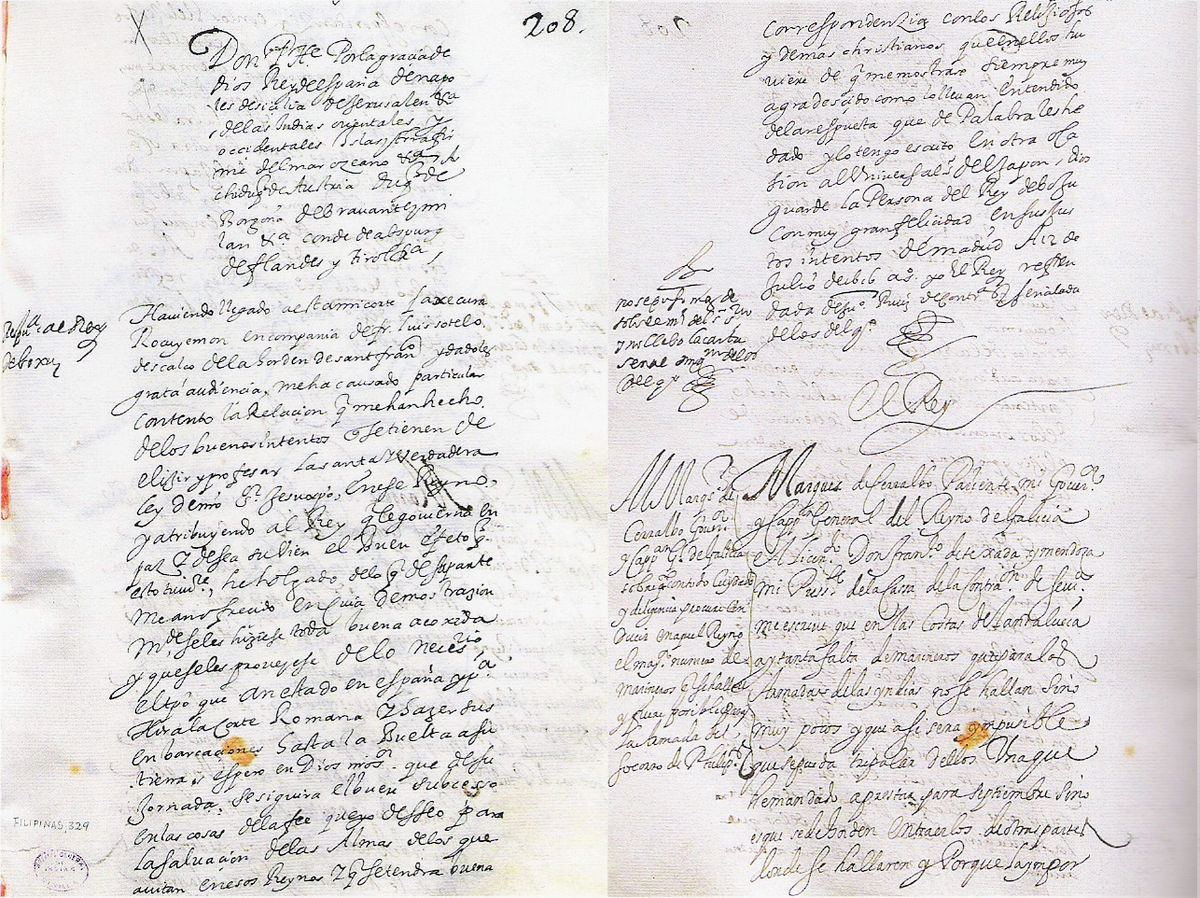 208.
Don Phe Por la gracia de
dios Rey de españa de napo
les de sicilia de Jerusalen &a
de las Indias orientales y
occidentales Islas y tierra fir
me del mar oceano &a Ar
chiduq de Austria Duq de
Borgoña de Bravante y mi
lan &a conde de abspurg
de flandes y tirol &a
Respta al Rey
de boxu
Haviendo llegado a esta mi corte faxecura
Rocuyemon en compania de fr. luis sotelo
descalco de la horden de sant franco y dadoles
grata audiencia, me ha causado particular
contento la Relacion q me han hecho
de los buenos intentos q se tienen de
elixir y profesar la santa y verdadera
ley de nro sr Jesuxpo, en ese Reyno,
y atribuyendo al Rey q le govierna en
paz y desea su bien el buen efeto q
esto tuvire, he holgado de lo q de su parte
me an ofrecido en cuia demostracion
Mde se les hiziese toda buena acoxida
y que se les proveyese de lo necesrio
el tpo que an estado en españa y pa
Hir a la Corte Romana y hazer sus
enbarcaciones hasta la buelta a su
tierra y espero en Dios nro sr que de su
Jornada, se siguira el buen subcesso
en las cosas de la fee que yo desseo para
la salvacion de las Almas de los que
avitan en esos Reynos y q se tendra buena
FILIPINAS, 329
correspondenzia con los Relijiosos
y demas christianos que en ellos hu
viere de q me mostrare siempre muy
agradescido como lo llevan entendido
de la respuesta que de Palabra les he
dado y lo tengo escrito en otra oca
sion al Universal sr del Japon, Dios
guarde la Persona del Rey de boxu
con muy gran felicidad en sus jus
tos intentos de madrid A 12 de
Julio de 1616 as. yo el Rey refren
dada de sro Ruiz de Contrras señalada
de los del qo
El Rey
Marques de Serralbo Pariente mi Gover.
y Cappn General del Reyno de Galicia
el licendo Don franco de texada y mendoca
mi Pressdte de la Cassa de la Contraon de sevia
me escrive que en las Costas de Landalucia
ay tanta falta de marineros que para las
Armadas de las yndias no se hallan sino
muy pocos y que asi sera ynpusible
que se pueda tripular dellos Una que
he mandado aprestar para septiembre sino
es que se de horden en traerlos de otras partes
donde se hallaren y Porque la ynpor